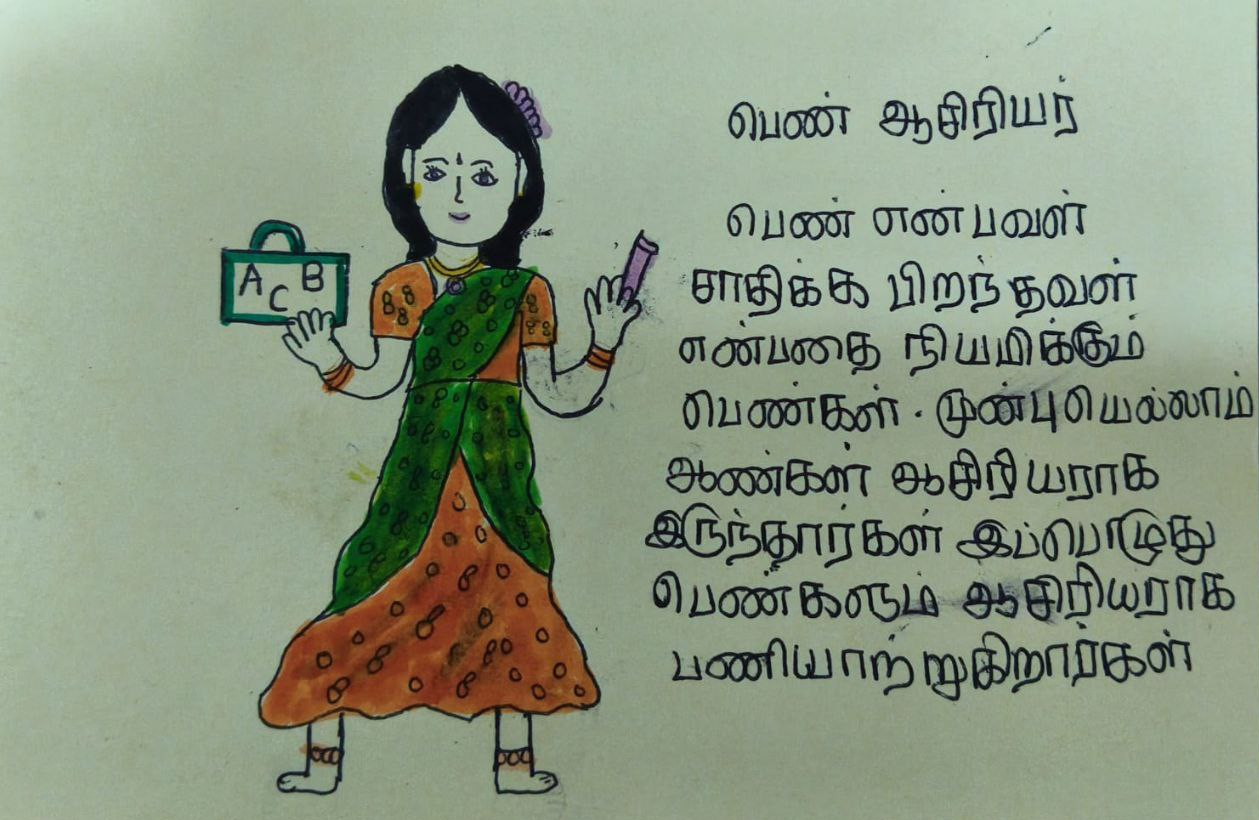 A B
C
பெண் ஆசிரியர்
பெண் என்பவள்
சாதிக்க பிறந்தவள்
என்பதை நியமிக்கும்
பெண்கள். முன்புயெல்லாம்
ஆண்கள் ஆசிரியராக
இருந்தார்கள் இப்பொழுது
பெண்களும் ஆசிரியராக
பணியாற்றுகிறார்கள்